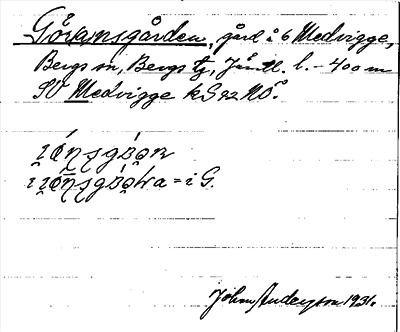 Göransgården, gård i 6 Medvigge,
Bergs sn, Bergs tg, Jämtl. l. - 400 m
SV Medvigge kG 92 NÖ.
= i G.
John Anderson 1931.